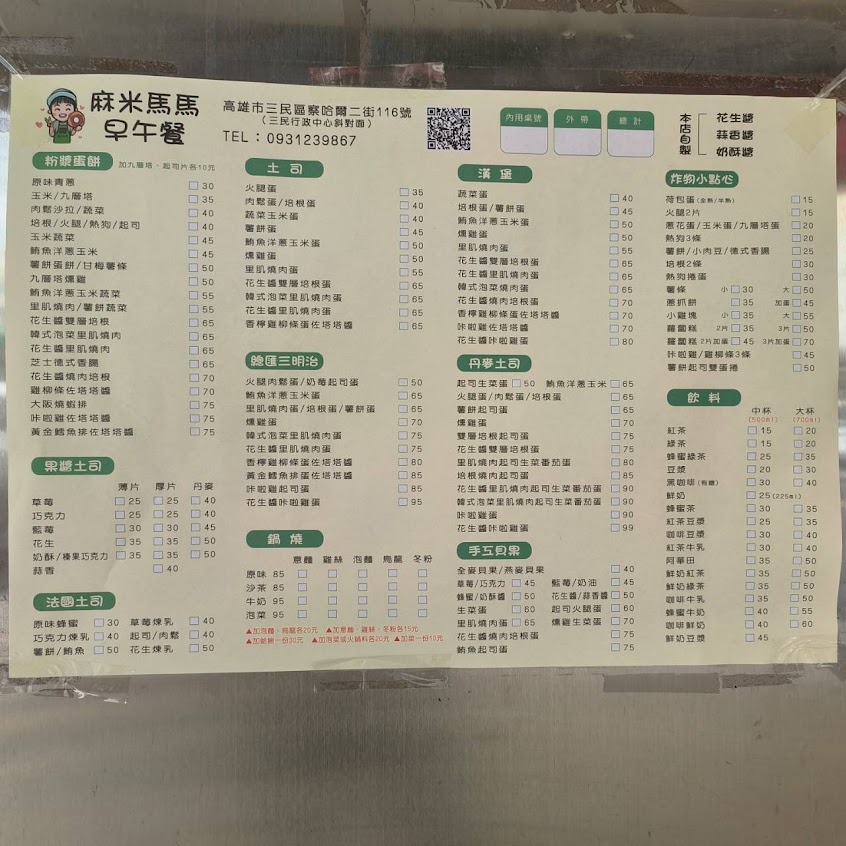 麻米馬馬
早午餐
高雄市三民區察哈爾二街116號
(三民行政中心斜對面)
TEL：0931239867
內用桌號
外帶
總計
本店自製
花生醬
蒜香醬
奶酥醬
粉漿蛋餅 加九層塔、起司片各10元
原味青蔥 30
玉米/九層塔 35
肉鬆沙拉/蔬菜 40
培根/火腿/熱狗/起司 40
玉米蔬菜 45
鮪魚洋蔥玉米 45
薯餅蛋餅/甘梅薯條 50
九層塔燻雞 50
鮪魚洋蔥玉米蔬菜 55
里肌燒肉/薯餅蔬菜 55
花生醬雙層培根 65
韓式泡菜里肌燒肉 65
花生醬里肌燒肉 65
芝士德式香腸 65
花生醬燒肉培根 70
雞柳條佐塔塔醬 70
大阪燒蝦排 75
咔啦雞佐塔塔醬 75
黃金鱈魚排佐塔塔醬 75
果醬土司
薄片 厚片 丹麥
草莓 25 25 40
巧克力 25 25 40
藍莓 30 30 45
花生 35 35 50
奶酥/榛果巧克力 35 35 50
蒜香 40
法國土司
原味蜂蜜 30 草莓煉乳 40
巧克力煉乳 40 起司/肉鬆 40
薯餅/鮪魚 50 花生煉乳 50
土司
火腿蛋 35
肉鬆蛋/培根蛋 40
蔬菜玉米蛋 40
薯餅蛋 45
鮪魚洋蔥玉米蛋 45
燻雞蛋 50
里肌燒肉蛋 55
花生醬雙層培根蛋 65
韓式泡菜里肌燒肉蛋 65
花生醬里肌燒肉蛋 65
香檸雞柳條蛋佐塔塔醬 65
總匯三明治
火腿肉鬆蛋/奶莓起司蛋 50
鮪魚洋蔥玉米蛋 65
里肌燒肉蛋/培根蛋/薯餅蛋 65
燻雞蛋 70
韓式泡菜里肌燒肉蛋 75
花生醬里肌燒肉蛋 75
香檸雞柳條蛋佐塔塔醬 80
黃金鱈魚排蛋佐塔塔醬 85
咔啦雞起司蛋 85
花生醬咔啦雞蛋 95
鍋燒
意麵 雞絲 泡麵 烏龍 冬粉
原味 85
沙茶 85
牛奶 95
泡菜 95
▲加泡麵、烏龍各20元 ▲加意麵、雞絲、冬粉各15元
▲加蛤蜊一份30元 ▲加泡菜或火鍋料各20元 ▲加菜一份10元
漢堡
蔬菜蛋 40
培根蛋/薯餅蛋 45
鮪魚洋蔥玉米蛋 50
燻雞蛋 50
里肌燒肉蛋 55
花生醬雙層培根蛋 65
花生醬里肌燒肉蛋 65
韓式泡菜燒肉蛋 65
花生醬燒肉培根蛋 70
香檸雞柳條蛋佐塔塔醬 70
咔啦雞佐塔塔醬 70
花生醬咔啦雞蛋 80
丹麥土司
起司生菜蛋 50 鮪魚洋蔥玉米 65
火腿蛋/肉鬆蛋/培根蛋 65
薯餅起司蛋 70
燻雞蛋 70
雙層培根起司蛋 75
花生醬雙層培根蛋 75
里肌燒肉起司生菜番茄蛋 80
培根燒肉起司蛋 85
花生醬里肌燒肉起司生菜番茄蛋 90
韓式泡菜里肌燒肉起司生菜番茄蛋 90
咔啦雞蛋 90
花生醬咔啦雞蛋 99
手工貝果
全麥貝果/燕麥貝果 40
草莓/巧克力 45 藍莓/奶油 45
蜂蜜/奶酥醬 50 花生醬/蒜香醬 50
生菜蛋 60 起司火腿蛋 60
里肌燒肉蛋 65 燻雞生菜蛋 60
花生醬燒肉培根蛋 75
鮪魚起司蛋 75
炸物小點心
荷包蛋(全熟/半熟) 15
火腿2片 15
蔥花蛋/玉米蛋/九層塔蛋 20
熱狗3條 20
薯餅/小肉豆/德式香腸 25
培根2條 30
熱狗捲蛋 30
薯條 小 30 大 50
蔥抓餅 35 加蛋 45
小雞塊 小 35 大 50
蘿蔔糕 2片 35 3片 50
蘿蔔糕 2片加蛋 45 3片加蛋 70
咔啦雞/雞柳條3條 45
薯餅起司雙蛋捲 50
飲料
中杯(500ml) 大杯(700ml)
紅茶 15 20
綠茶 15 20
蜂蜜綠茶 25 35
豆漿 20 30
黑咖啡(有糖) 30 40
鮮奶 25(225ml)
蜂蜜茶 30 35
紅茶豆漿 25 35
咖啡豆漿 30 40
紅茶牛乳 30 40
阿華田 35 50
鮮奶紅茶 35 50
鮮奶綠茶 35 50
咖啡牛乳 35 50
蜂蜜牛奶 40 55
咖啡鮮奶 40 60
鮮奶豆漿 45